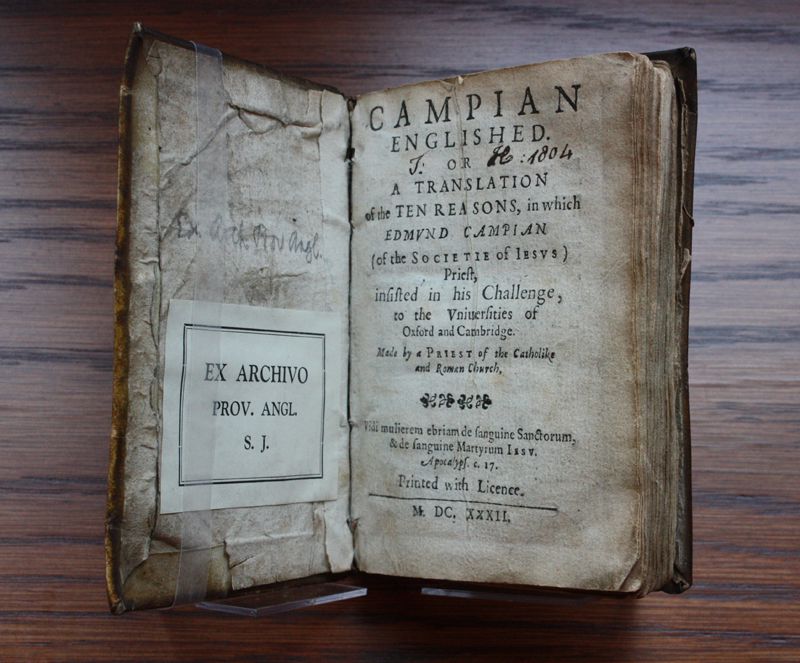 Ex Arch Prov Angl.
EX ARCHIVO
PROV. ANGL.
S. J.
CAMPIAN
ENGLISHED.
J. OR H: 1804
A TRANSLATION
of the TEN REASONS, in which
EDMVND CAMPIAN
(of the SOCIETIE of IESVS)
Prieſt,
inſiſted in his Challenge,
to the Vniuerſities of
Oxford and Cambridge.
Made by a PRIEST of the Catholike
and Roman Church.
Vidi mulierem ebriam de ſanguine Sanctorum,
& de ſanguine Martyrum IESV.
Apocalypſ. c. 17.
Printed with Licence.
M. DC. XXXII.